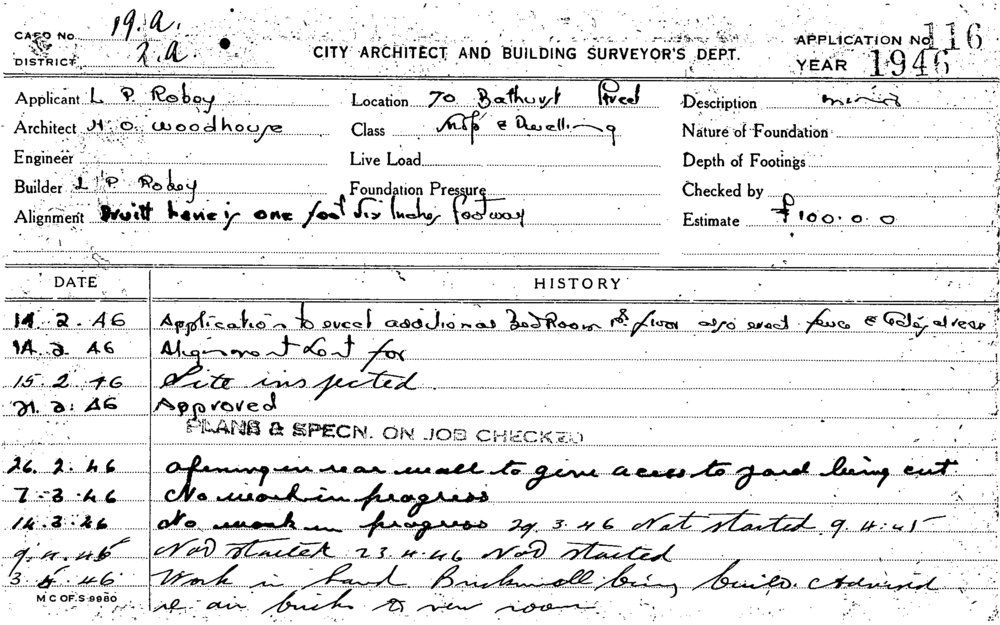 CARD No. 19.a.
DISTRICT 2.a.
CITY ARCHITECT AND BUILDING SURVEYOR'S DEPT.
APPLICATION No 116
YEAR 1946
Applicant L P Robey Location 70 Bathurst Street Description minor
Architect H O Woodhouse Class Shop & Dwelling Nature of Foundation
Engineer Live Load Depth of Footings
Builder L P Robey Foundation Pressure Checked by
Alignment one foot six Inches footway Estimate £100.0.0
DATE HISTORY
14 2 46 Application to erect additional BedRoom 1st floor also erect fence &
14 2 46 Alignment for
15. 2 46 Site inspected
21. 2. 46 Approved
PLANS & SPECN. ON JOB CHECKED
26. 2. 46 opening in rear wall to give acess to yard being cut
7 - 3 - 46 No work in progress
14. 3. 46 No work in progress 29. 3. 46 Not started 9. 4. 45
9. 4. 45 Not started 23 4. 46 Not started
3 46 Work in hand Brickwall being built. Advised
M C OF. S 9980 re air bricks to new room